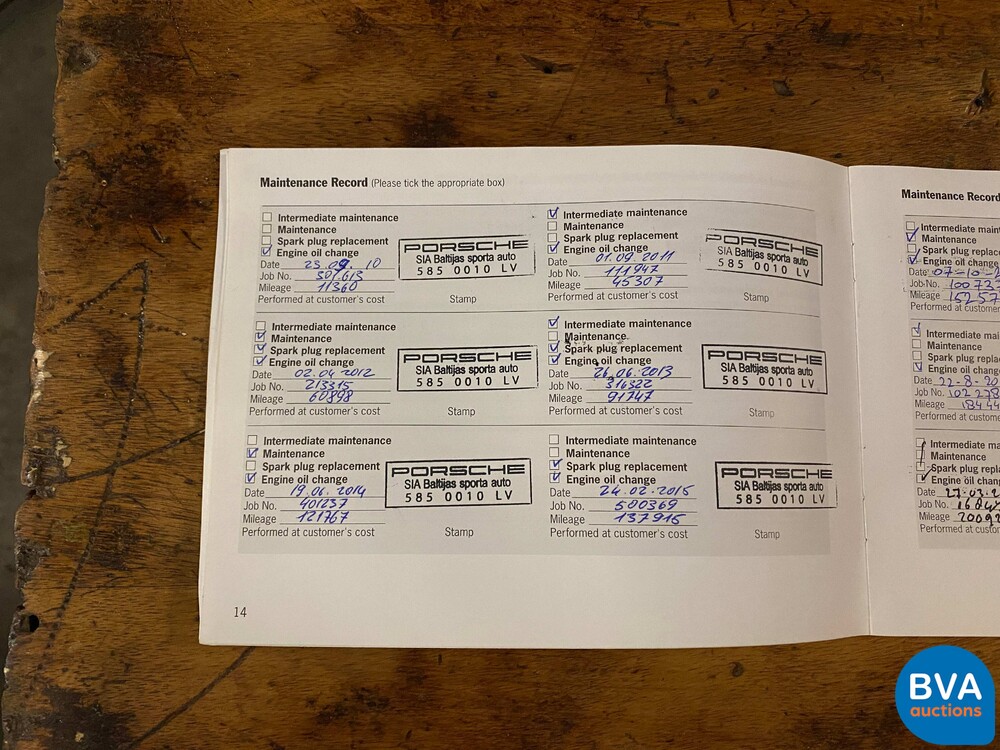 Maintenance Record (Please tick the appropriate box)
Intermediate maintenance
Maintenance
Spark plug replacement
Engine oil change
Date 23.09.10
Job No. 301613
Mileage 11360
Performed at customer's cost
PORSCHE
SIA Baltijas sporta auto
585 0010 LV
Stamp
Intermediate maintenance
Maintenance
Spark plug replacement
Engine oil change
Date 01.09.2011
Job No. 111947
Mileage 45307
Performed at customer's cost
PORSCHE
SIA Baltijas sporta auto
585 0010 LV
Stamp
Intermediate maintenance
Maintenance
Spark plug replacement
Engine oil change
Date 02.04.2012
Job No. 213315
Mileage 60898
Performed at customer's cost
PORSCHE
SIA Baltijas sporta auto
585 0010 LV
Stamp
Intermediate maintenance
Maintenance
Spark plug replacement
Engine oil change
Date 26.06.2013
Job No. 316322
Mileage 91747
Performed at customer's cost
PORSCHE
SIA Baltijas sporta auto
585 0010 LV
Stamp
Intermediate maintenance
Maintenance
Spark plug replacement
Engine oil change
Date 19.06.2014
Job No. 401237
Mileage 121767
Performed at customer's cost
PORSCHE
SIA Baltijas sporta auto
585 0010 LV
Stamp
Intermediate maintenance
Maintenance
Spark plug replacement
Engine oil change
Date 24.02.2015
Job No. 500369
Mileage 137916
Performed at customer's cost
PORSCHE
SIA Baltijas sporta auto
585 0010 LV
Stamp
14
Maintenance Record
Intermediate main
Maintenance
Spark plug replac
Engine oil change
Date 07-10-
Job No. 100737
Mileage 15257
Performed at custome
Intermediate mai
Maintenance
Spark plug replac
Engine oil change
Date 22-8-20
Job No. 102278
Mileage 18444
Performed at custom
Intermediate ma
Maintenance
Spark plug repla
Engine oil chang
Date 27-03-2
Job No.
Mileage 20092
Performed at custom
BVA
auctions